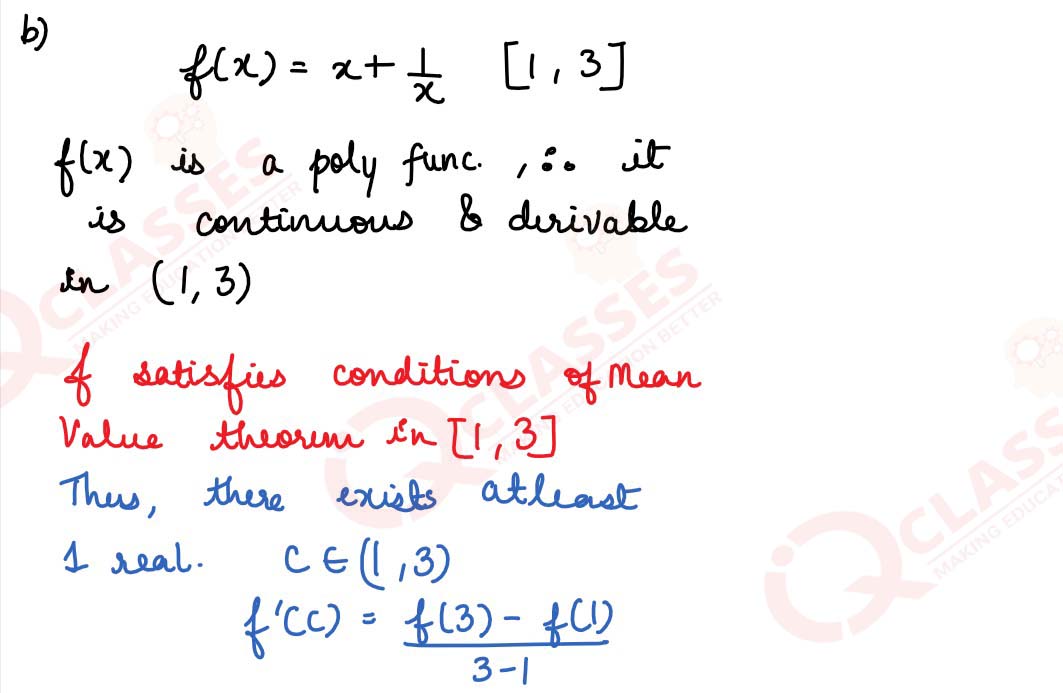 b)
f(x) = x + 1/x [1, 3]
f(x) is a poly func., ∴ it
is continuous & derivable
in (1, 3)
f satisfies conditions of Mean
Value theorem in [1, 3]
Thus, there exists atleast
1 real. C ∈ (1, 3)
f'(C) = f(3) - f(1) / 3-1
CLASSES
MAKING EDUCATION BETTER
CLASSES
MAKING EDUCATION BETTER
CLASS
MAKING EDUCAT